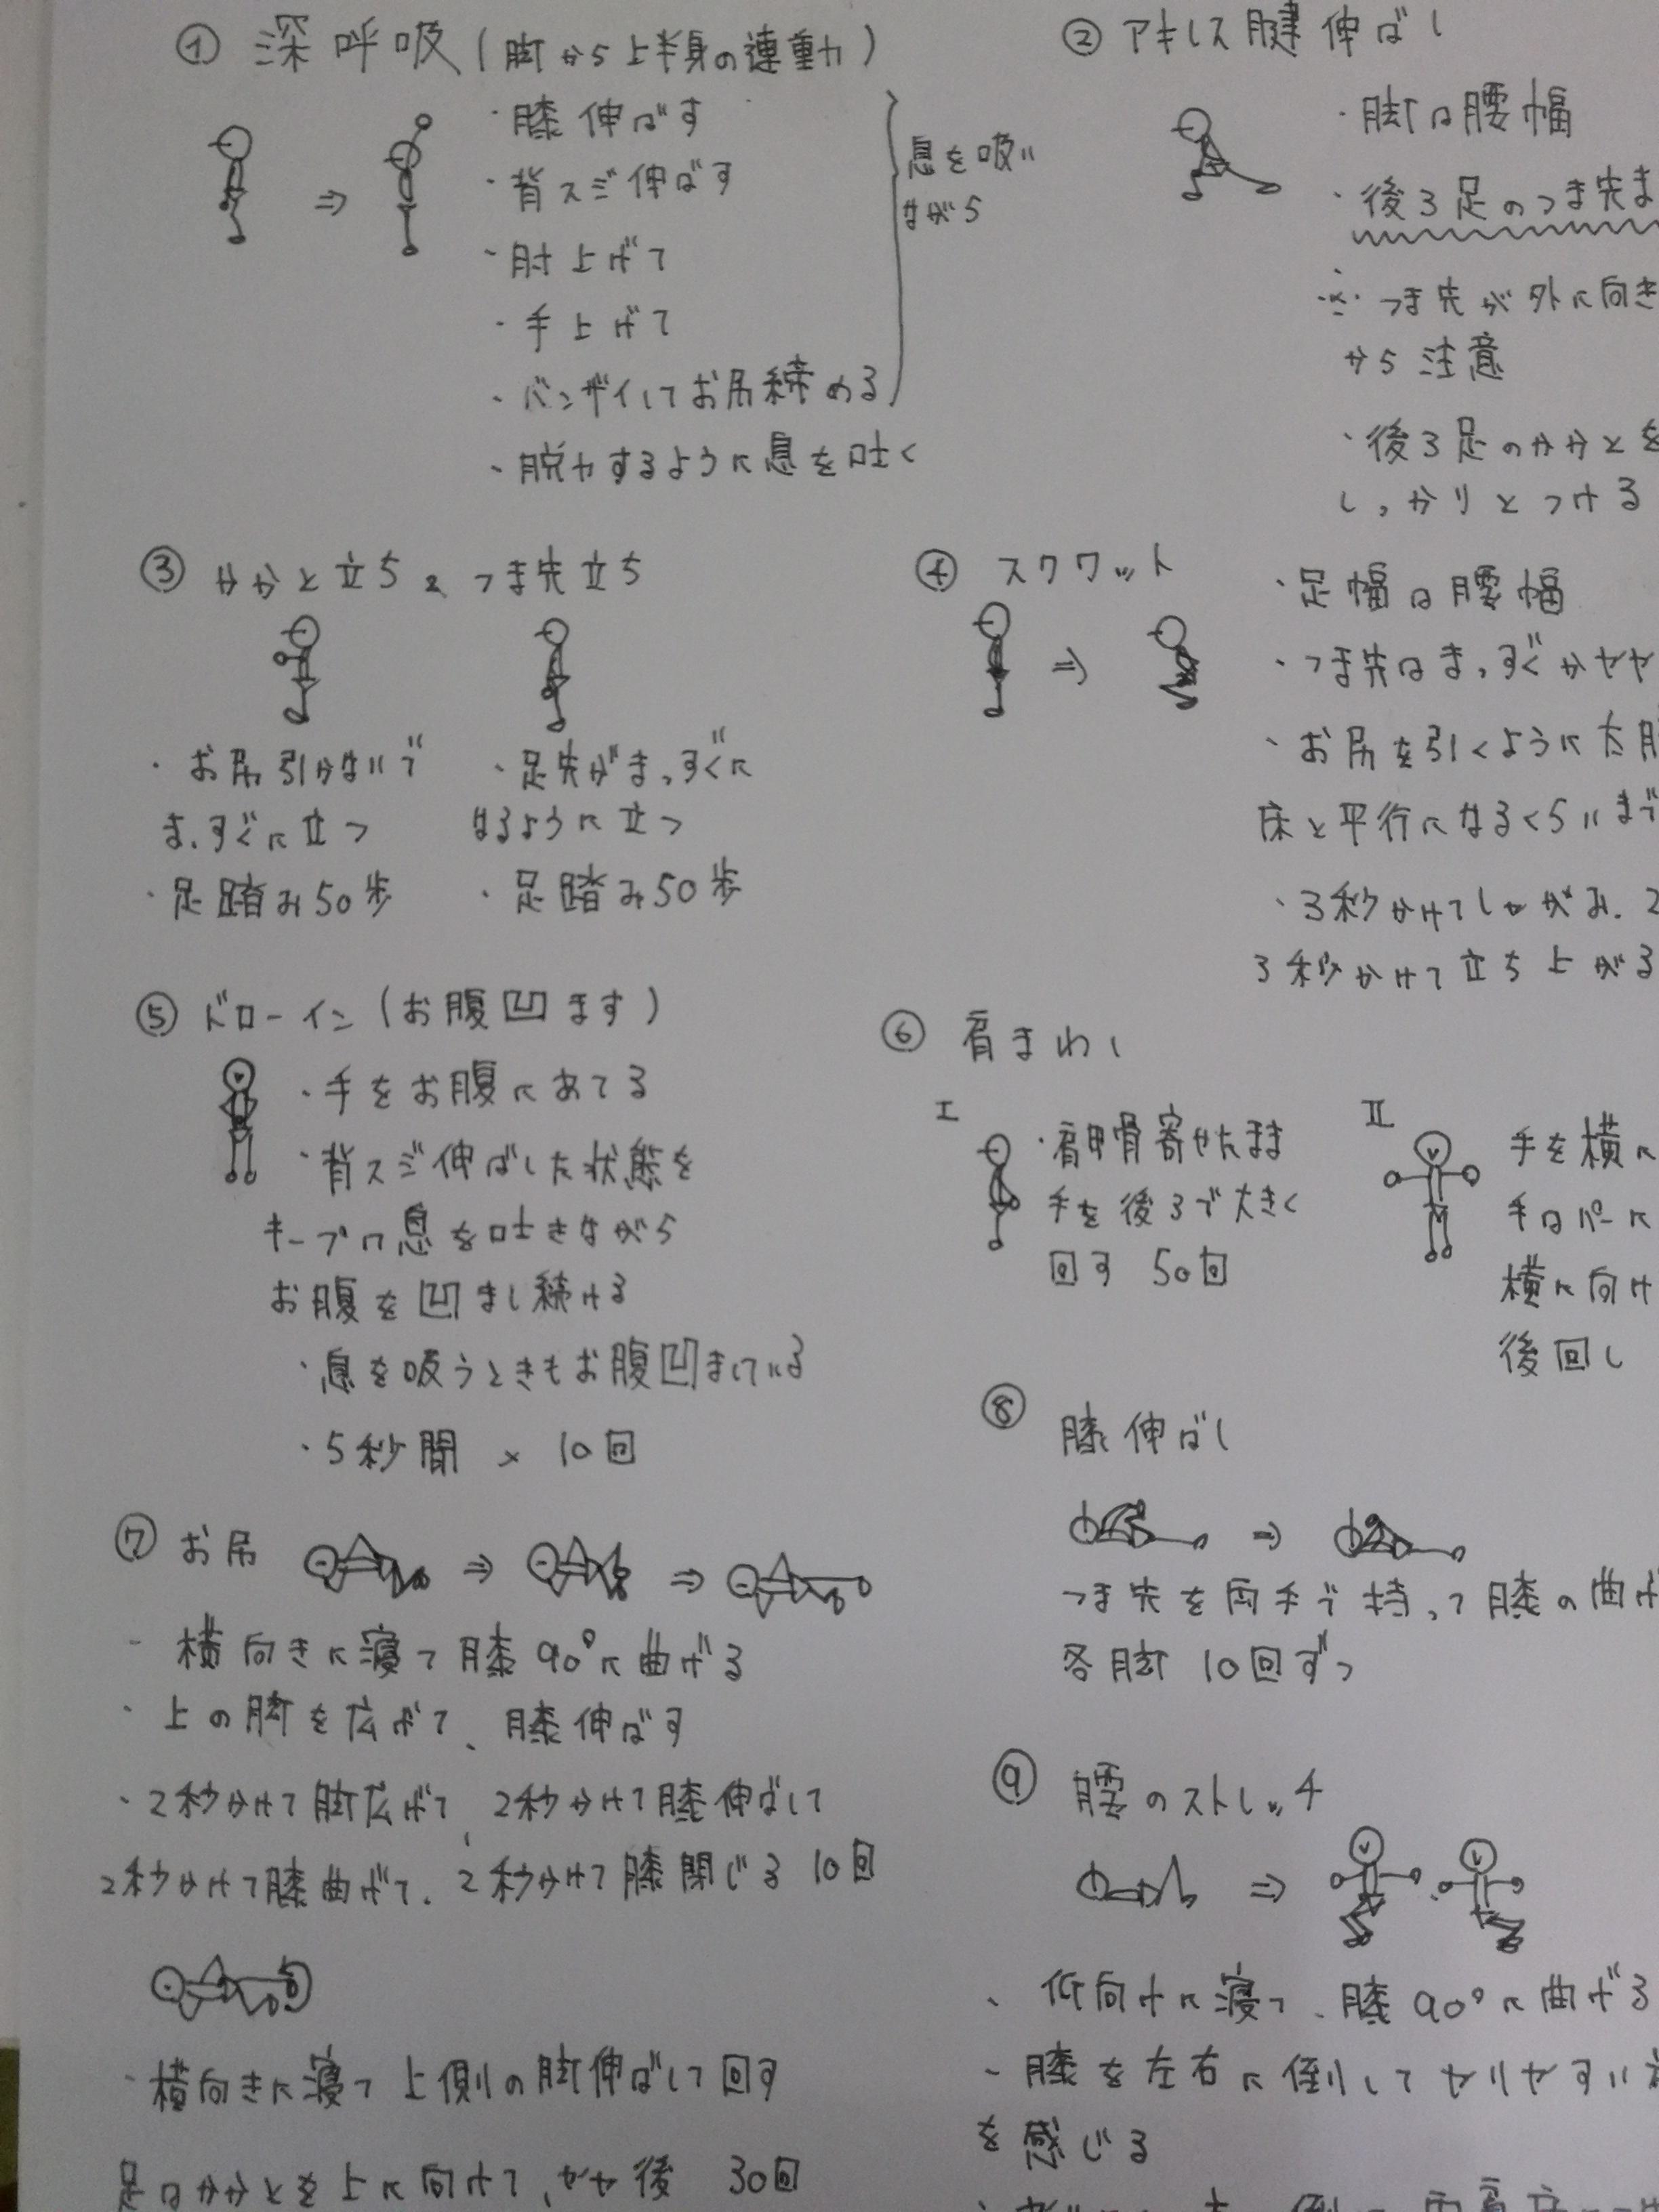 ① 深呼吸(脚から上半身の連動)
・膝伸ばす
・背スジ伸ばす
・肘上げて
・手上げて
・バンザイしてお尻締める
息を吸い
ながら
・脱力するように息を吐く
② アキレス腱伸ばし
・脚は腰幅
・後ろ足のつま先ま
※つま先が外に向き
から注意
・後ろ足のかかとを
しっかりとつける
③ かかと立ち & つま先立ち
・お尻引かないで
まっすぐに立つ
・足踏み50歩
・足先がまっすぐに
なるように立つ
・足踏み50歩
④ スクワット
・足幅は腰幅
・つま先はまっすぐかやや
・お尻を引くように太
床と平行になるくらいまで
・3秒かけてしゃがみ、2
3秒かけて立ち上がる
⑤ ドローイン(お腹凹ます)
・手をお腹にあてる
・背スジ伸ばした状態を
キープ 息を吐きながら
お腹を凹まし続ける
・息を吸うときもお腹凹ましている
・5秒間 × 10回
⑥ 肩まわし
I
・肩甲骨寄せたまま
手を後ろで大きく
回す 50回
II
手を横に
手はパーに
横に向け
後回し
⑦ お尻
- 横向きに寝て膝90°に曲げる
・上の脚を広げて、膝伸ばす
・2秒かけて脚広げて、2秒かけて膝伸ばして
2秒かけて膝曲げて、2秒かけて膝閉じる 10回
・横向きに寝て上側の脚伸ばして回す
足はかかとを上に向けて、やや後 30回
⑧ 膝伸ばし
つま先を両手で持って膝の曲げ
各脚 10回ずつ
⑨ 腰のストレッチ
、仰向けに寝て、膝90°に曲げる
- 膝を左右に倒してやりやすい
を感じる